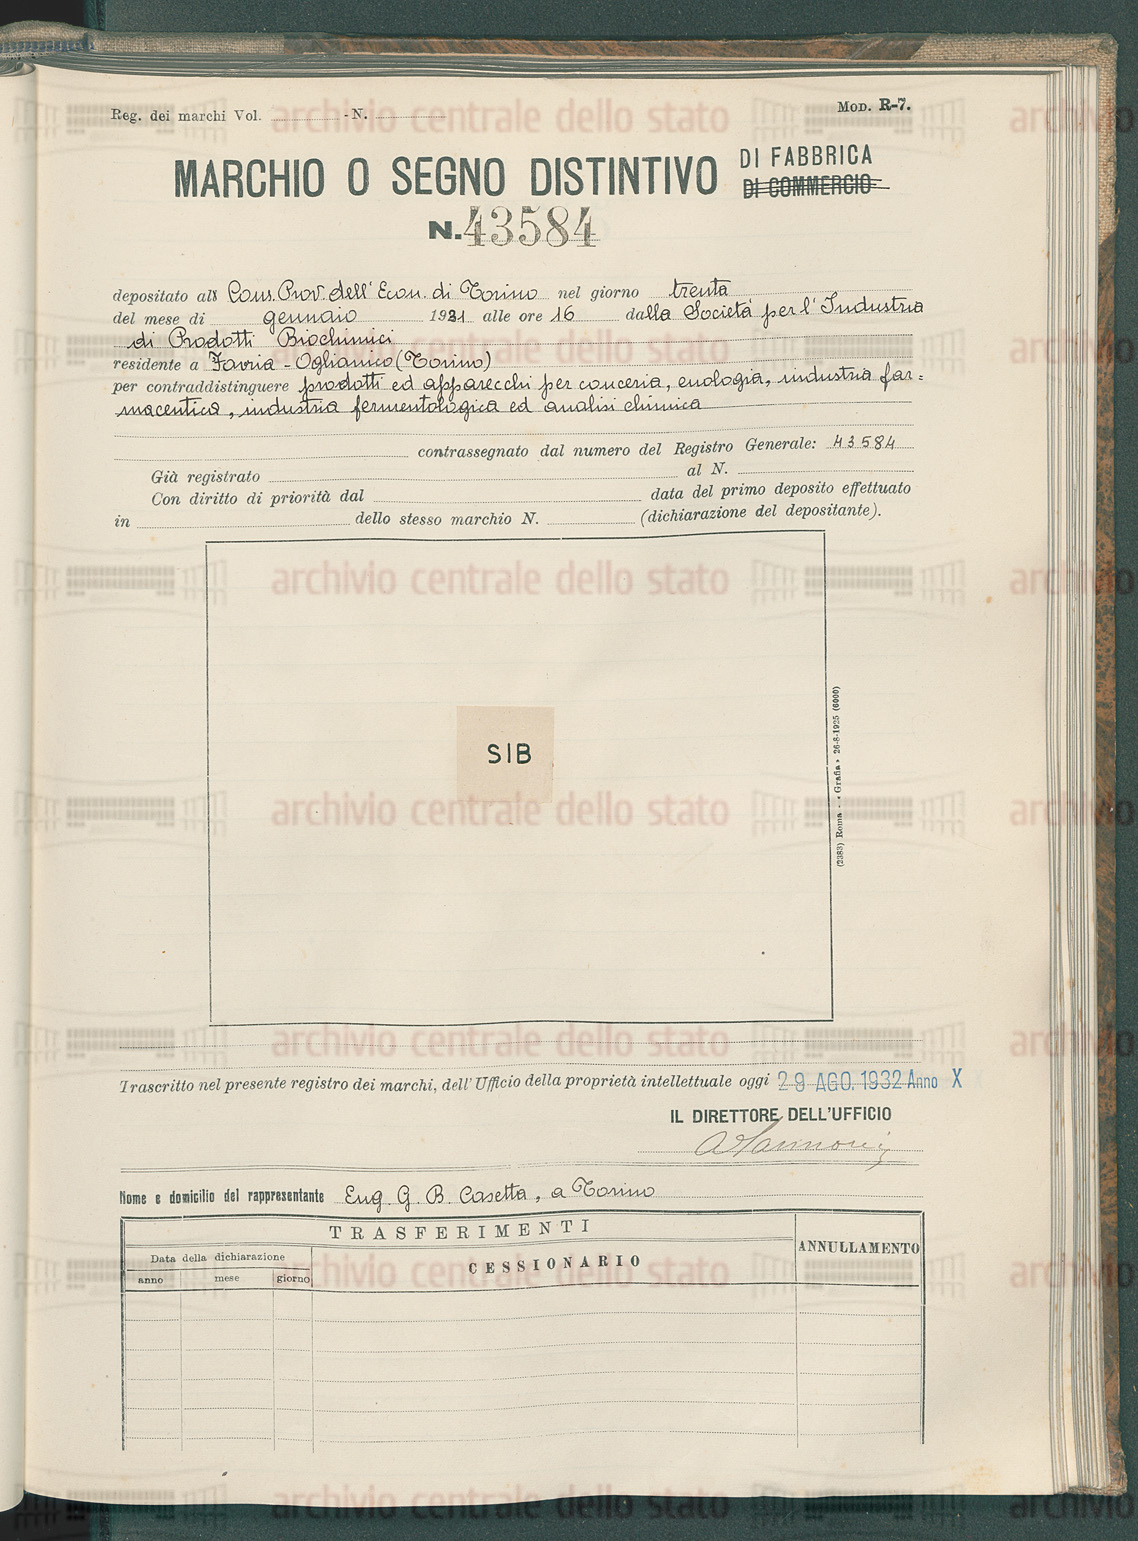 Reg. dei marchi Vol. - N.
MOD. R-7.
MARCHIO O SEGNO DISTINTIVO
DI FABBRICA
DI COMMERCIO
N. 43584
depositato al Cons. Prov. dell' Econ. di Torino nel giorno trenta
del mese di gennaio 1931 alle ore 16 dalla Società per l' Industria
di Prodotti Biochimici
residente a Favria - Oglianico (Torino)
per contraddistinguere prodotti ed apparecchi per conceria, enologia, industria far=
maceutica, industria fermentologica ed analisi chimica
contrassegnato dal numero del Registro Generale: 43584
Già registrato al N.
Con diritto di priorità dal data del primo deposito effettuato
in dello stesso marchio N. (dichiarazione del depositante).
SIB
(2383) Roma - « Grafia » 26-8-1925 (6000)
Trascritto nel presente registro dei marchi, dell' Ufficio della proprietà intellettuale oggi 29 AGO. 1932 Anno X
IL DIRETTORE DELL'UFFICIO
Nome e domicilio del rappresentante Eug. G. B. Casetta, a Torino
TRASFERIMENTI
ANNULLAMENTO
Data della dichiarazione
CESSIONARIO
anno mese giorno
archivio centrale dello stato
archivio centrale dello stato
archivio centrale dello stato
archivio centrale dello stato
archivio centrale dello stato
archivio centrale dello stato
archivio centrale dello stato